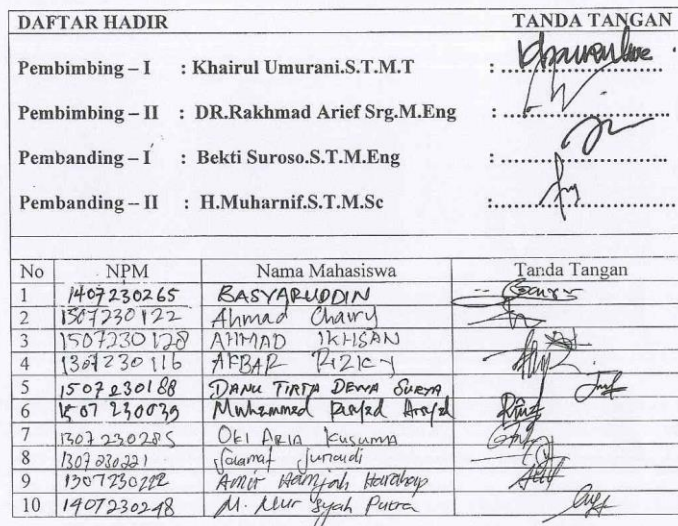 DAFTAR HADIR TANDA TANGAN
Pembimbing – I : Khairul Umurani.S.T.M.T : ..........................
Pembimbing – II : DR.Rakhmad Arief Srg.M.Eng : ..........................
Pembanding – I : Bekti Suroso.S.T.M.Eng : ..........................
Pembanding – II : H.Muharnif.S.T.M.Sc :..........................
No NPM Nama Mahasiswa Tanda Tangan
1 1407230265 BASYARUDDIN
2 1507230122 Ahmad Chairy
3 1507230128 AHMAD IKHSAN
4 1307230116 AKBAR RIZKY
5 1507230188 DANU TIRTA DEWA SURYA
6 1507230039 Muhammad
7 1307230285 OKI ARIA KUSUMA
8 1307230221 Salamat Junaidi
9 1307230222 Amir Hamzah Harahap
10 1407230248 M. Nur Syah Putra